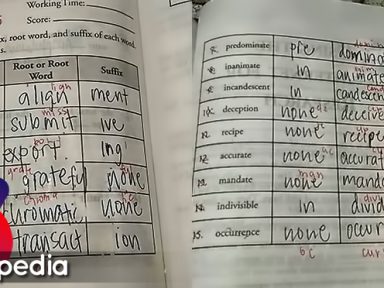 Working Time:
Score:
x, root word, and suffix of each word.
s.
Root or Root Word Suffix
align ment
submit ive
export ing
grateful none
chromatic none
transact ion
pedia
predominate pre domina
inanimate in animate
incandescent in candescen
deception none deceive
11. recipe none recipe
12. accurate none accura
13. mandate none manda
indivisible in divid
15. occurrence none occur